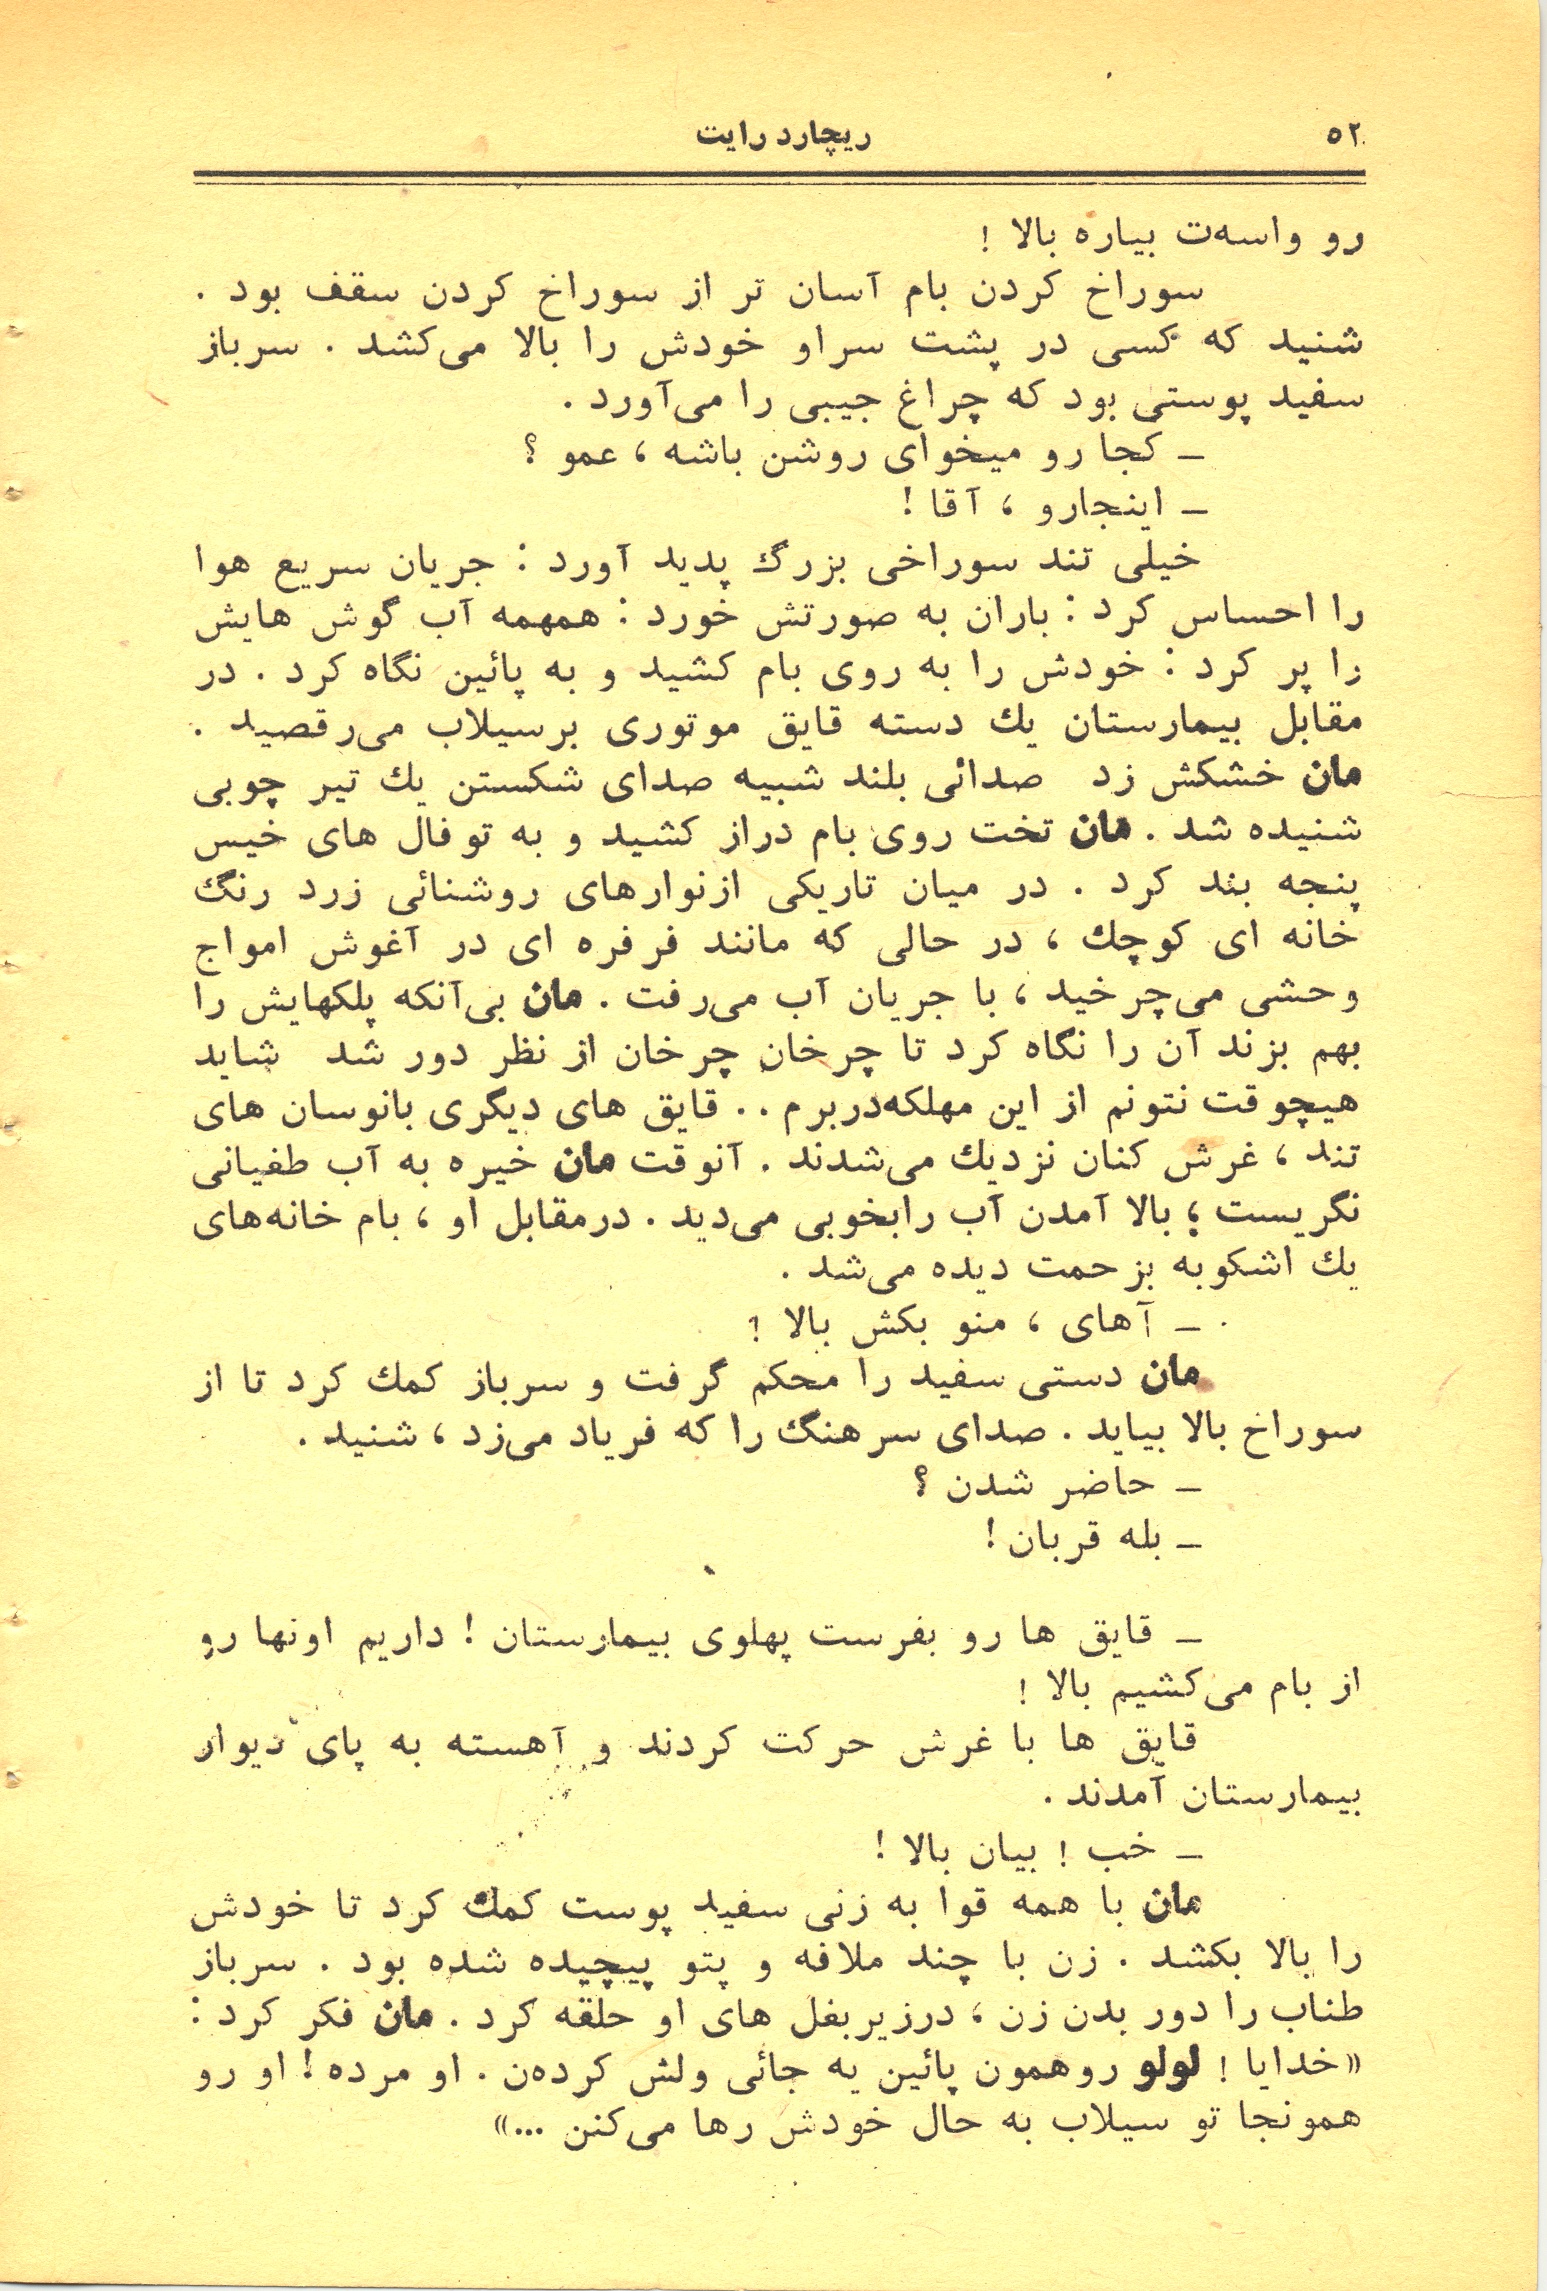 ۵۲
ریچارد رایت
رو واسه‌ت بیاره بالا !
سوراخ کردن بام آسان تر از سوراخ کردن سقف بود .
شنید که کسی در پشت سراو خودش را بالا می‌کشد . سرباز
سفید پوستی بود که چراغ جیبی را می‌آورد .
ــ کجا رو میخوای روشن باشه ، عمو ؟
ــ اینجارو ، آقا !
خیلی تند سوراخی بزرگ پدید آورد : جریان سریع هوا
را احساس کرد : باران به صورتش خورد : همهمه آب گوش هایش
را پر کرد : خودش را به روی بام کشید و به پائین نگاه کرد . در
مقابل بیمارستان یك دسته قایق موتوری برسیلاب می‌رقصید .
مان خشکش زد صدائی بلند شبیه صدای شکستن یك تیر چوبی
شنیده شد . مان تخت روی بام دراز کشید و به توفال های خیس
پنجه بند کرد . در میان تاریکی ازنوارهای روشنائی زرد رنگ
خانه ای کوچك ، در حالی که مانند فرفره ای در آغوش امواج
وحشی می‌چرخید ، با جریان آب می‌رفت . مان بی‌آنکه پلکهایش را
بهم بزند آن را نگاه کرد تا چرخان چرخان از نظر دور شد شاید
هیچوقت نتونم از این مهلکه‌دربرم . . قایق های دیگری بانوسان های
تند ، غرش کنان نزدیك می‌شدند . آنوقت مان خیره به آب طغیانی
نگریست ؛ بالا آمدن آب رابخوبی می‌دید . درمقابل او ، بام خانه‌های
یك اشکوبه بزحمت دیده می‌شد .
ــ آهای ، منو بکش بالا !
مان دستی سفید را محکم گرفت و سرباز کمك کرد تا از
سوراخ بالا بیاید . صدای سرهنگ را که فریاد می‌زد ، شنید .
ــ حاضر شدن ؟
ــ بله قربان !
ــ قایق ها رو بفرست پهلوی بیمارستان ! داریم اونها رو
از بام می‌کشیم بالا !
قایق ها با غرش حرکت کردند و آهسته به پای دیوار
بیمارستان آمدند .
ــ خب ! بیان بالا !
مان با همه قوا به زنی سفید پوست کمك کرد تا خودش
را بالا بکشد . زن با چند ملافه و پتو پیچیده شده بود . سرباز
طناب را دور بدن زن ، درزیربغل های او حلقه کرد . مان فکر کرد :
«خدایا ! لولو روهمون پائین یه جائی ولش کرده‌ن . او مرده ! او رو
همونجا تو سیلاب به حال خودش رها می‌کنن ...»